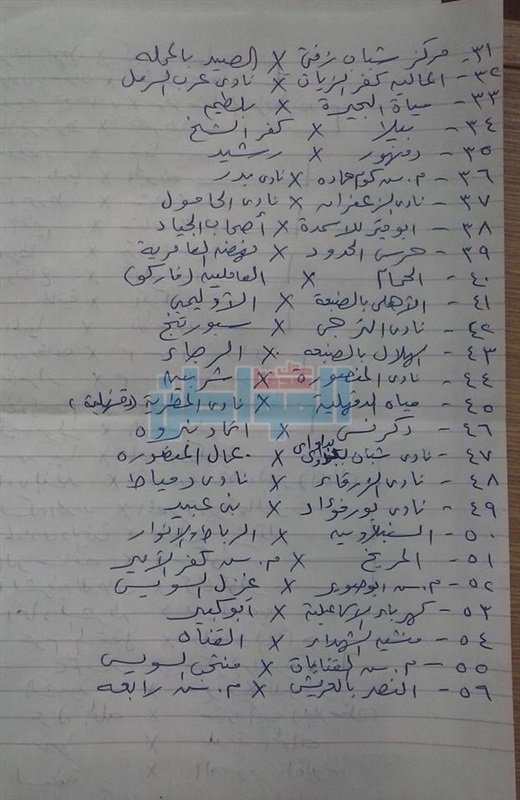 ٣١- مركز شباب زفتى × الصيد بالمحله
٣٢- المالية كفر الزيات × نادى عرب الرمل
٣٣- مياة البحيرة × بلطيم
٣٤- بيلا × كفر الشيخ
٣٥- دمنهور × رشيد
٣٦- م. ش كوم حماده × نادى بدر
٣٧- نادى الزعفران × نادى الحامول
٣٨- ابو قير للاسمدة × أصحاب الجياد
٣٩- حرس الحدود × نهضه العامرية
٤٠- الحمام × العاملين (فاركو)
٤١- الأهلى بالضبعة × الأوليمبى
٤٢- نادى الترجى × سبورتنج
٤٣- الهلال بالضبعه × الرجاء
٤٤- نادى المنصورة × شربين
٤٥- مياه الدقهلية × نادى المطرية (دقهلية)
٤٦- دكرنس ×
٤٧- نادى شبان × عمال المنصوره
٤٨- نادى الزرقاء × نادى دمياط
٤٩- نادى بورفؤاد × بنى عبيد
٥٠- السنبلاوين × الرباط والانوار
٥١- المريخ × م. ش كفر الأمير
٥٢- م. ش ابو صوير × غزل السويس
٥٣- كهرباء الإسماعيلية × ابو كبير
٥٤- منشيه الشهداء × القناه
٥٥- م. ش القنايات × منتخب السويس
٥٦- النصر بالعريش × م. ش رابعه